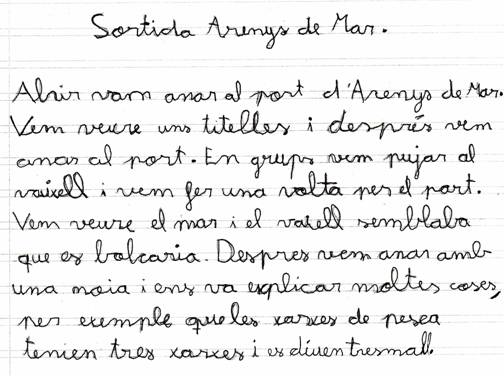 Sortida Arenys de Mar.
Ahir vam anar al port d'Arenys de Mar.
Vem veure uns titelles i després vem
anar al port. En grups vem pujar al
vaixell i vem fer una volta per el port.
Vem veure el mar i el vaxell semblaba
que es bolcaria. Despres vem anar amb
una noia i ens va explicar moltes coses,
per exemple que les xarxes de pesca
tenien tres xarxes i es diuen tresmall.